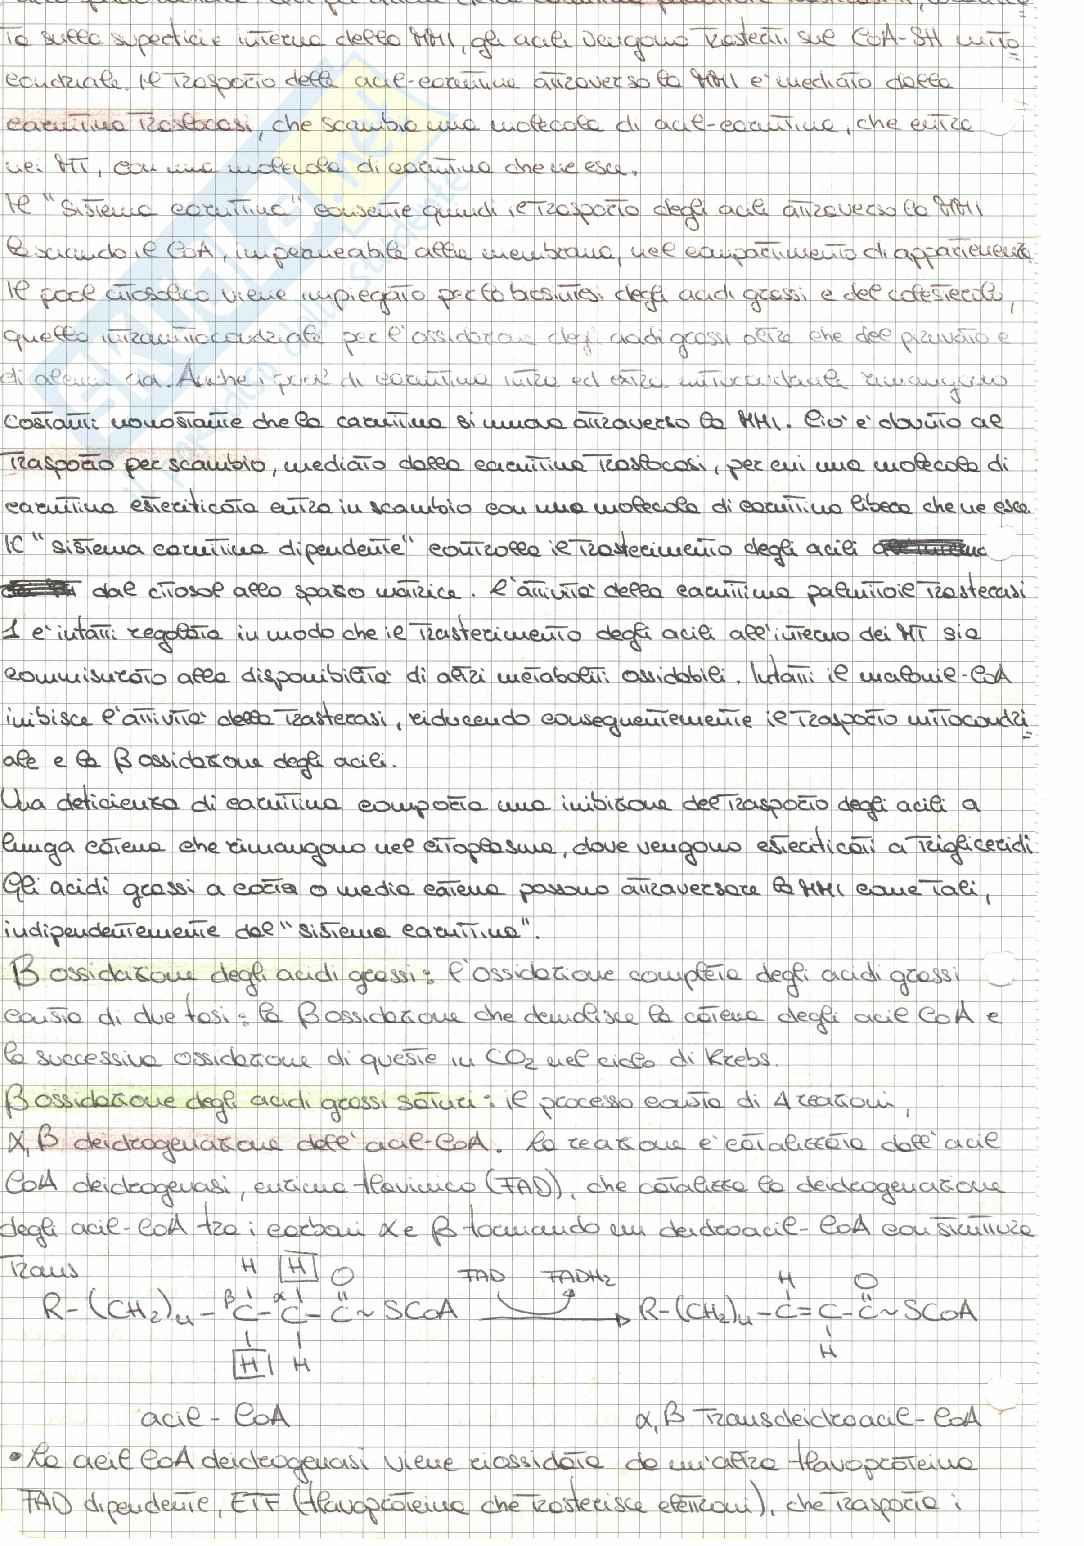 to sulla superficie interna della MMI, gli acili vengono trasferiti sul CoA-SH mito
condriale. Il trasporto delle acil-carnitina attraverso la MMI e' mediato dalla
carnitina traslocasi, che scambia una molecola di acil-carnitina, che entra
nei MT, con una molecola di carnitina che ne esce.
Il "sistema carnitina" consente quindi il trasporto degli acili attraverso la MMI
lasciando il CoA, impermeabile alla membrana, nel compartimento di appartenenza
Il pool citosolico viene impiegato per la biosintesi degli acidi grassi e del colesterolo,
quello intramitocondriale per l'ossidazione degli acidi grassi oltre che del piruvato e
di alcuni aa. Anche i pool di carnitina intra ed extra mitocondriale rimangono
costanti nonostante che la carnitina si muova attraverso la MMI. Cio' e' dovuto al
trasporto per scambio, mediato dalla carnitina traslocasi, per cui una molecola di
carnitina esterificata entra in scambio con una molecola di carnitina libera che ne esce
Il "sistema carnitina dipendente" controlla il trasferimento degli acili
dal citosol allo spazio matrice. L'attivita' della carnitina palmitoil trasferasi
1 e' infatti regolata in modo che il trasferimento degli acili all'interno dei MT sia
commisurato alla disponibilita' di altri metaboliti ossidabili. Infatti il malonil-CoA
inibisce l'attivita' della trasferasi, riducendo conseguentemente il trasporto mitocondri
ale e la β ossidazione degli acili.
Una deficienza di carnitina comporta una inibizione del trasporto degli acili a
lunga catena che rimangono nel citoplasma, dove vengono esterificati a trigliceridi
Gli acidi grassi a corta o media catena possono attraversare la MMI come tali,
indipendentemente dal "sistema carnitina".
β ossidazione degli acidi grassi: l'ossidazione completa degli acidi grassi
consta di due fasi: la β ossidazione che demolisce la catena degli acil CoA e
la successiva ossidazione di queste in CO2 nel ciclo di Krebs.
β ossidazione degli acidi grassi saturi: il processo consta di 4 reazioni,
α, β deidrogenazione dell'acil-CoA. La reazione e' catalizzata dall'acil
CoA deidrogenasi, enzima flavinico (FAD), che catalizza la deidrogenazione
degli acil-CoA tra i carboni α e β formando un deidroacil-CoA con struttura
trans
H H O FAD FADH2 H O
R-(CH2)n-βC-αC-C~SCoA R-(CH2)n-C=C-C~SCoA
H H H
acil-CoA α,β transdeidroacil-CoA
• La acil CoA deidrogenasi viene riossidata da un'altra flavoproteina
FAD dipendente, ETF (flavoproteina che trasferisce elettroni), che trasporta i